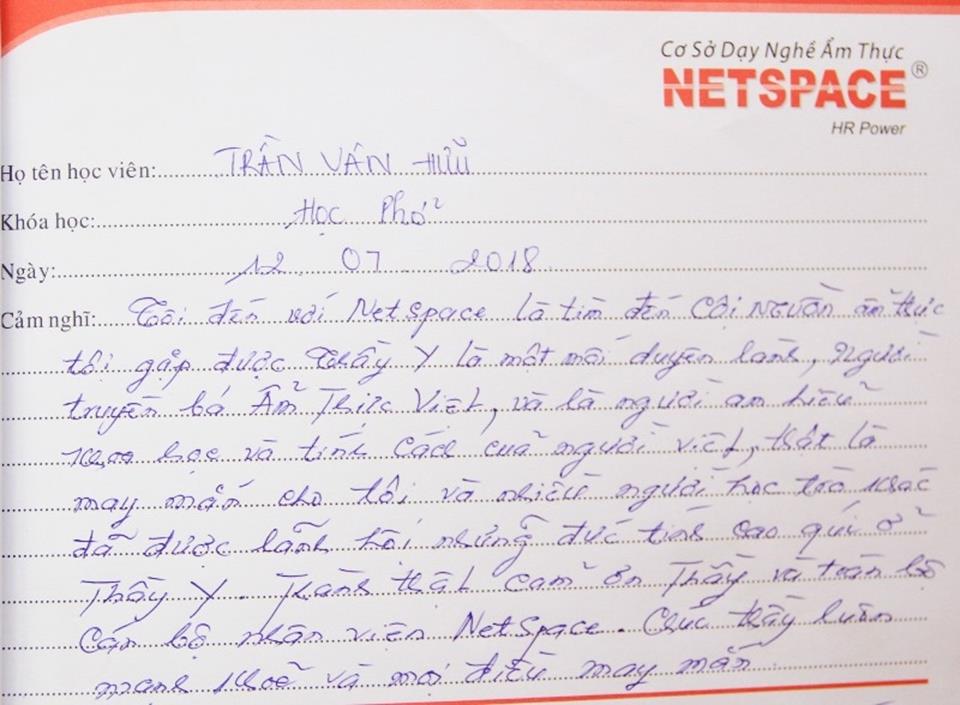 Cơ Sở Dạy Nghề Ẩm Thực
NETSPACE®
HR Power
Họ tên học viên: TRẦN VĂN HỮU
Khóa học: Học Phở
Ngày: 12 07 2018
Cảm nghĩ: Tôi đến với NetSpace là tìm đến CỘI NGUỒN ẩm thực
tôi gặp được Thầy Y là một mối duyên lành, người
truyền bá Ẩm Thực Việt, và là người am hiểu
khoa học và tính cách của người Việt, thật là
may mắn cho tôi và nhiều người học trò khác
đã được lãnh hội những đức tính cao quí ở
Thầy Y. Thành thật cảm ơn Thầy và toàn bộ
cán bộ nhân viên NetSpace. Chúc thầy luôn
mạnh khoẽ và mọi điều may mắn